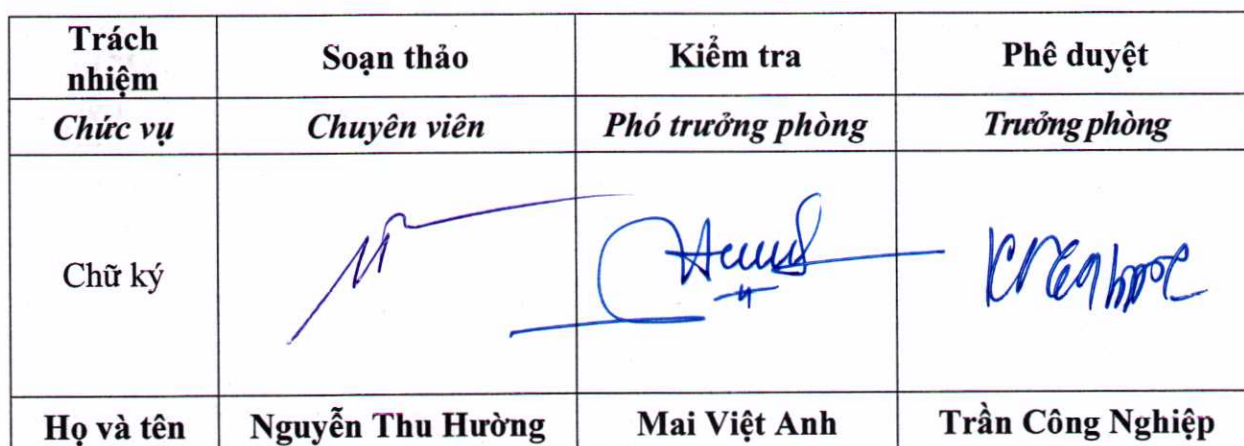 Trách nhiệm Soạn thảo Kiểm tra Phê duyệt
Chức vụ Chuyên viên Phó trưởng phòng Trưởng phòng
Chữ ký
Họ và tên Nguyễn Thu Hường Mai Việt Anh Trần Công Nghiệp